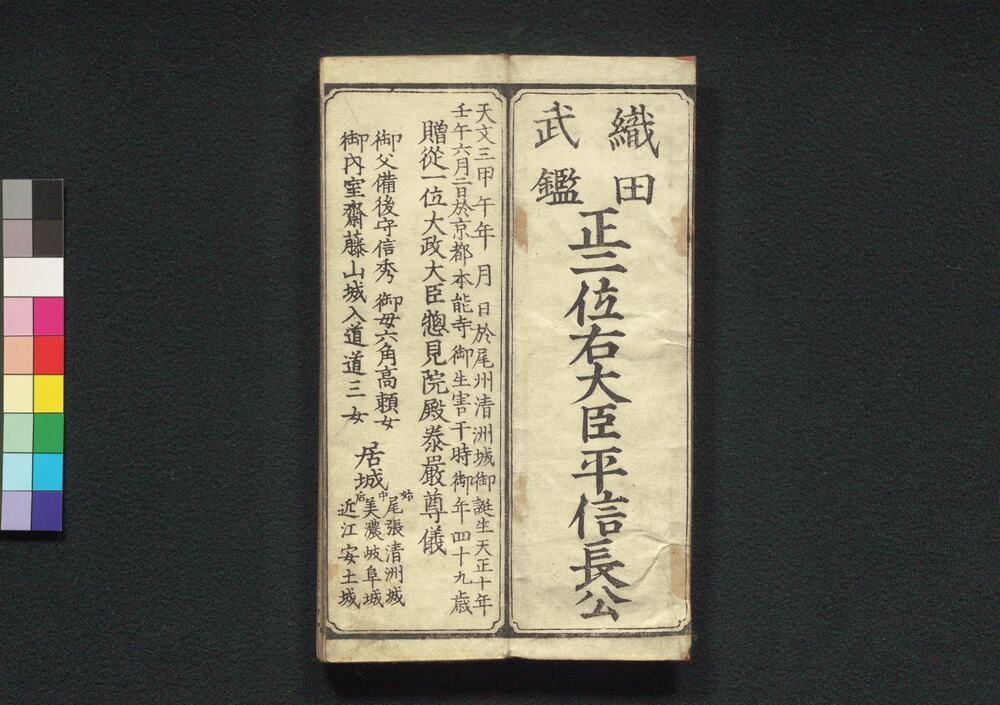 織田
武鑑
正二位右大臣平信長公
天文三甲午年月日於尾州清洲城御誕生天正十年
壬午六月二日於京都本能寺御生害于時御年四十九歳
贈從一位大政大臣惣見院殿泰巖尊儀
御父備後守信秀 御母六角高頼女
御内室齋藤山城入道道三女
居城
始尾張清洲城
中美濃岐阜城
后近江安土城